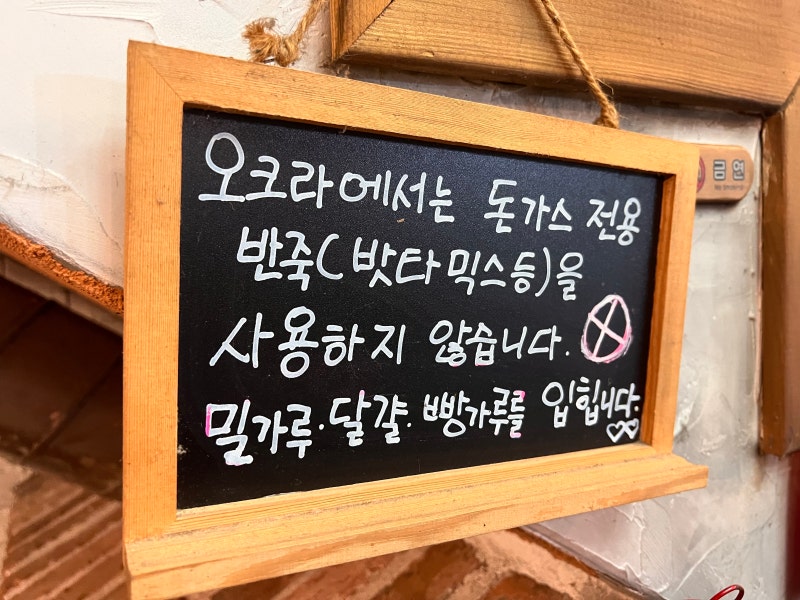 오크라에서는 돈가스 전용
반죽(밧타믹스등)을
사용하지 않습니다.
밀가루·달걀·빵가루를 입힙니다.
금연